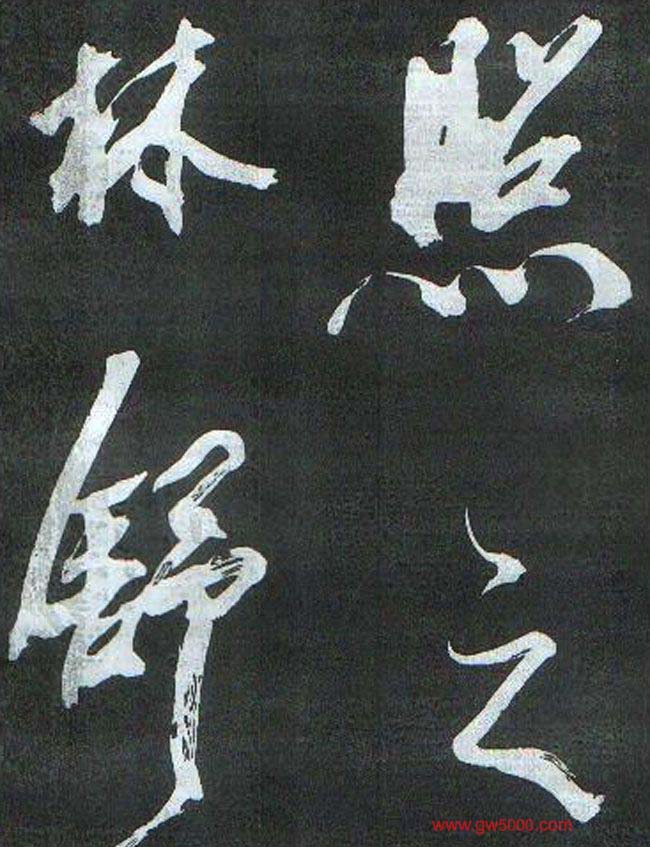 照之
林舒
www.gw5000.com